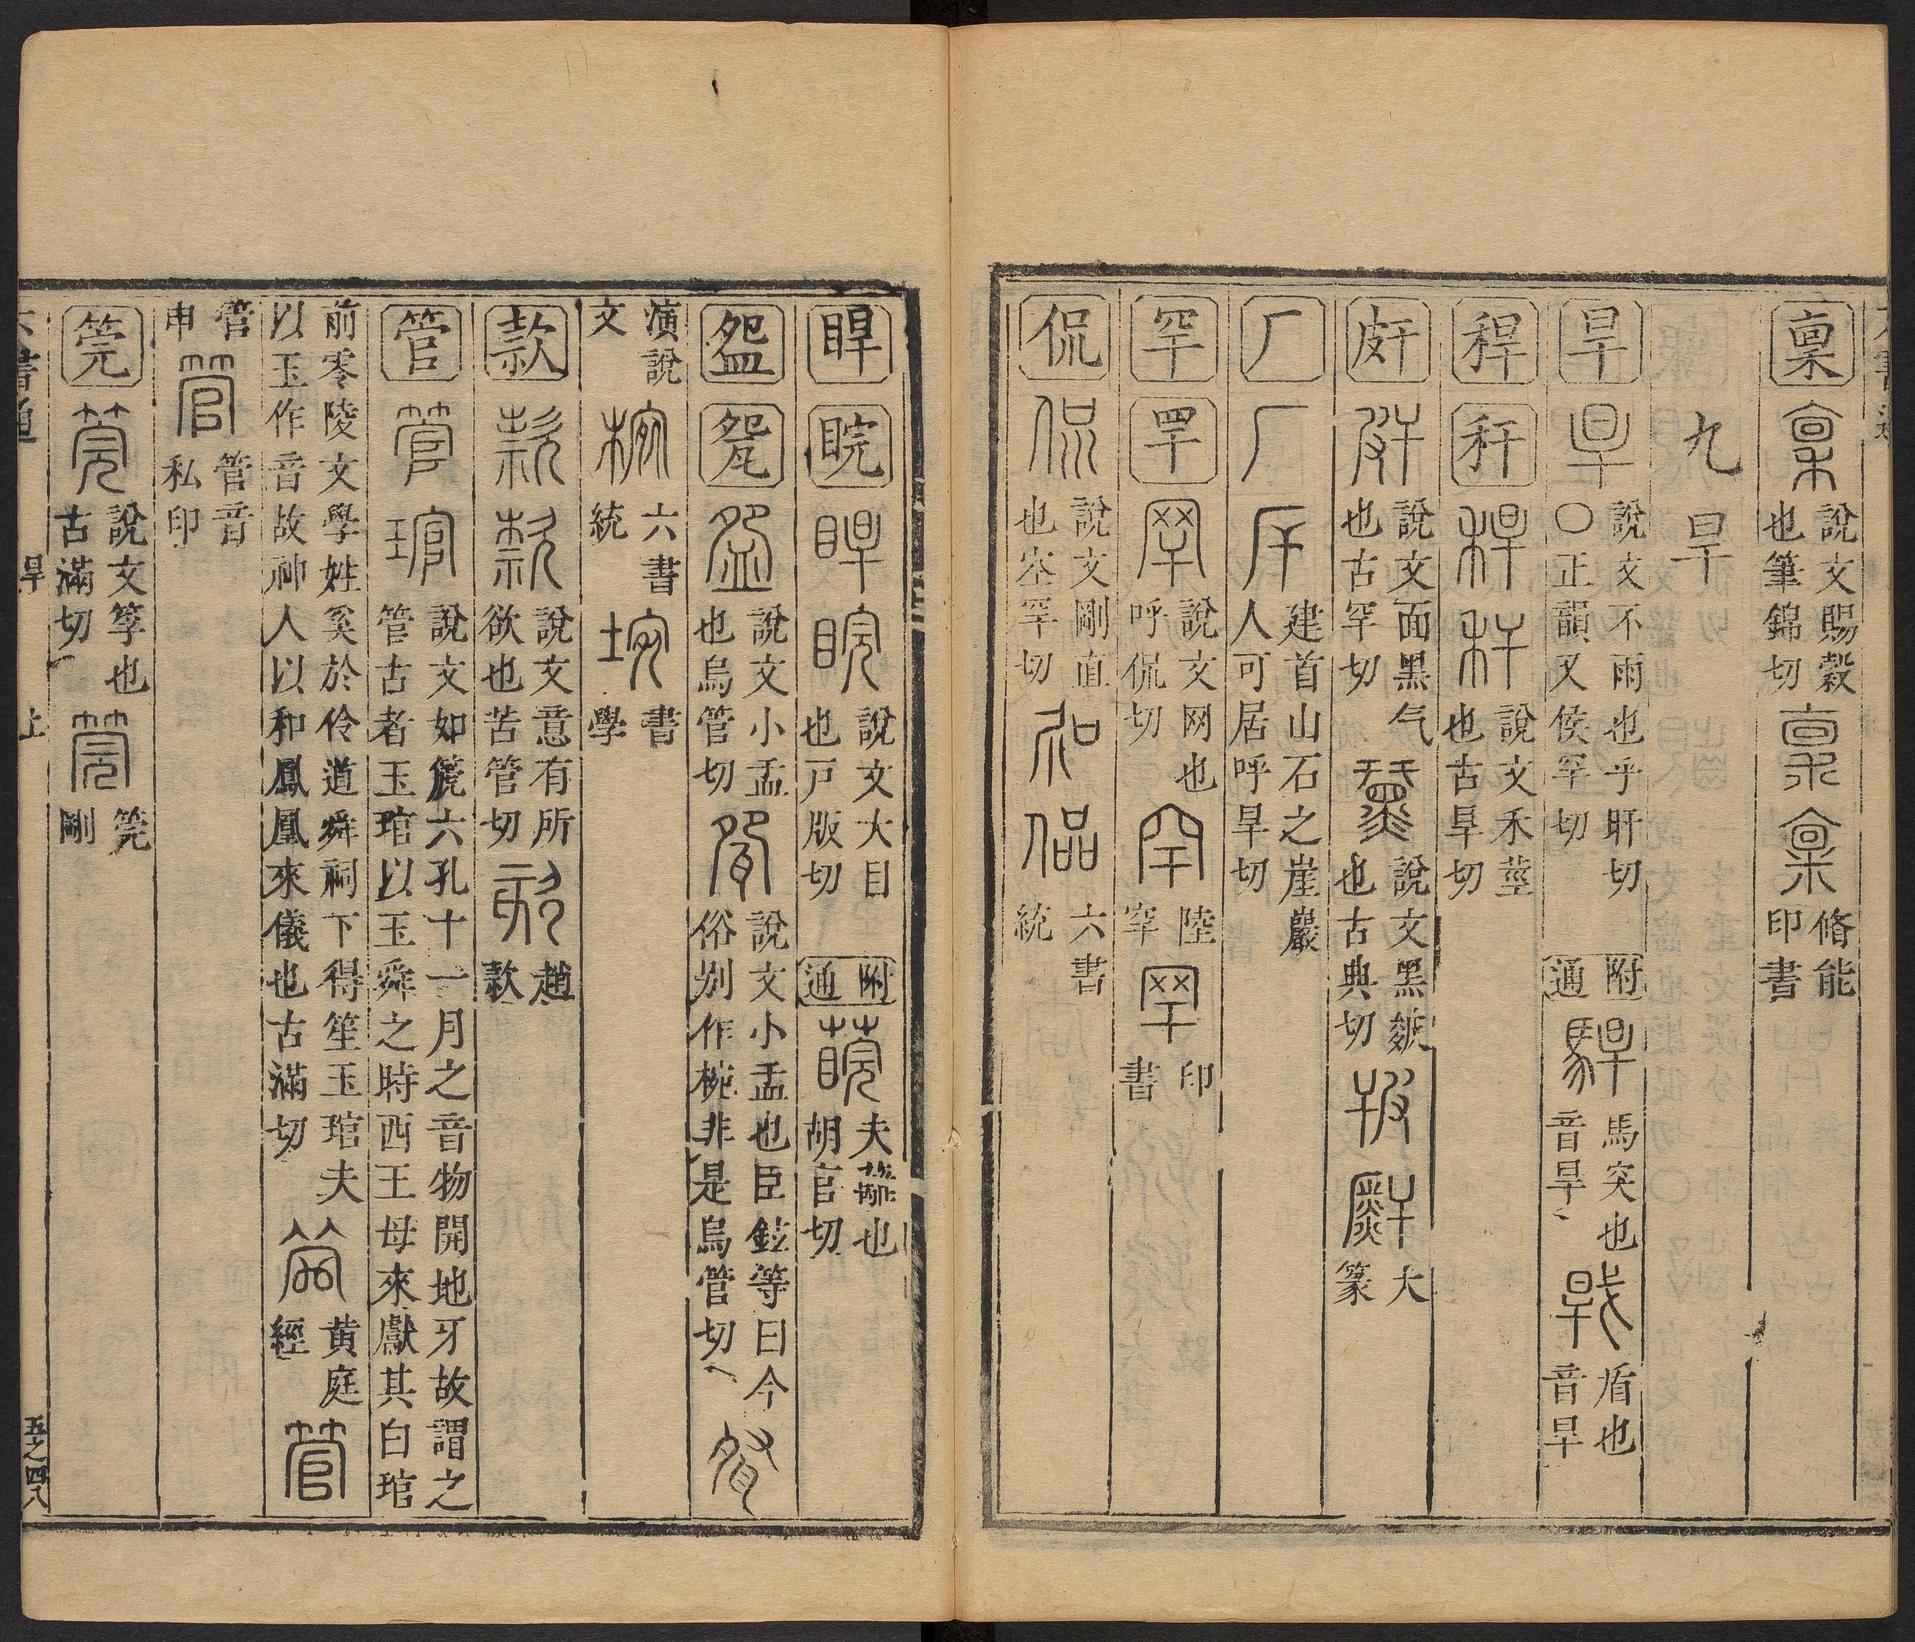 稟 說文賜穀
也筆錦切 脩能
印書
九旱
旱 說文不雨也乎旰切
〇正韻又侯罕切 附通 馬突也
音旱 盾也
音旱
稈 秆 說文禾莖
也古旱切
皯 說文面黑气
也古罕切 說文黑皴
也古典切 大
篆
厂 建首山石之崖巖
人可居呼旱切
罕 罕 說文网也
呼侃切 陸
罕 印
書
侃 說文剛直
也空罕切 六書
統
睅 睆 說文大目
也戸版切 附通 夫蘺也
胡官切
盌 㼝 說文小盂
也烏管切 說文小盂也臣鉉等曰今
俗别作椀非是烏管切
演說
文 六書
統 書
學
款 說文意有所
欲也苦管切 趙
款
管 說文如篪六孔十一月之音物開地牙故謂之
管古者玉琯以玉舜之時西王母來獻其白琯
前零陵文學姓奚於伶道舜祠下得笙玉琯夫
以玉作音故神人以和鳳凰來儀也古滿切 黄庭
經
管
申 管音
私印
筦 說文筟也
古滿切 筦
剛
六書通 旱 上 五之四八